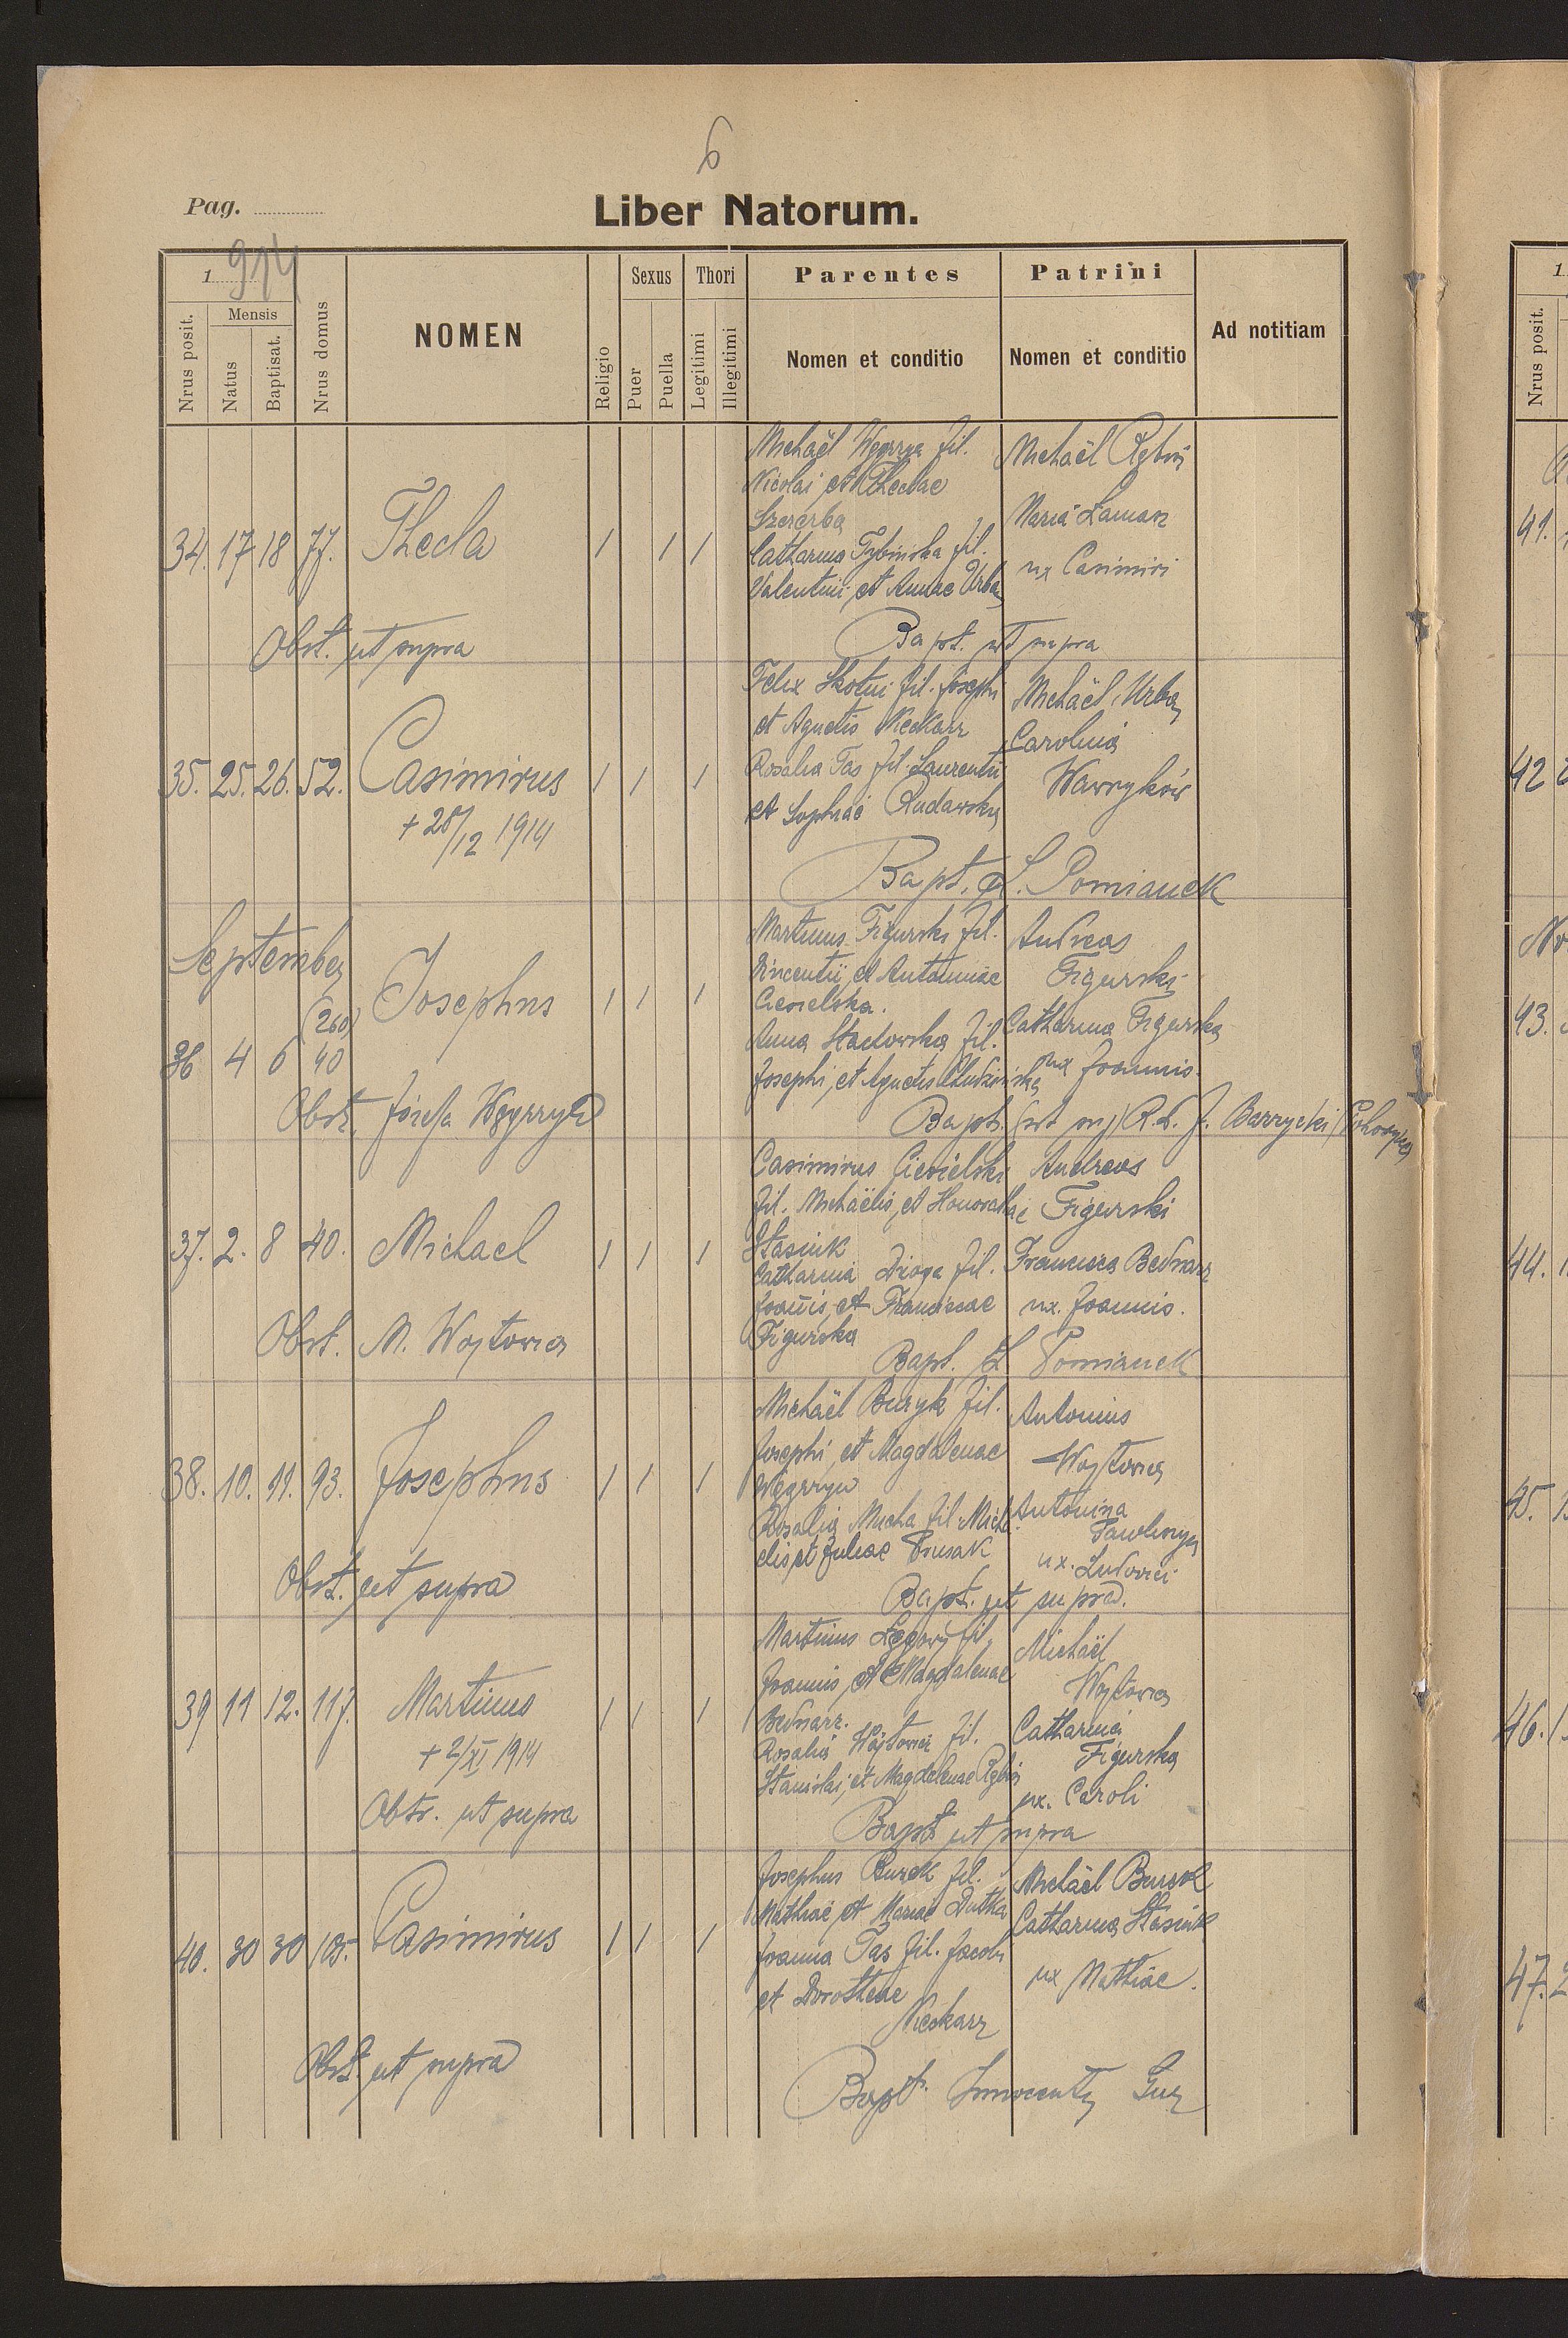 6
Pag.
Liber Natorum.
1 914
Nrus posit.
Mensis
Natus
Baptisat.
Nrus domus
NOMEN
Religio
Sexus
Puer
Puella
Thori
Legitimi
Illegitimi
Parentes
Nomen et conditio
Patrini
Nomen et conditio
Ad notitiam
34. 17 18 77. Thecla 1 1 1
Michaël Węgrzyn fil.
Nicolai et Theclae
Szczerba
Catharina Tybińska fil.
Valentini et Annae Urban
Michaël
Maria Laman
ux Casimiri
Obst. ut supra
Bapt. ut supra
35. 25. 26. 52. Casimirus 1 1 1
+ 28/12 1914
Felix Skotni fil. Josephi
et Agnetis Nieckarz
Rosalia Tas fil. Laurentii
et Sophiae Rudawska
Michaël Urban
Carolina
Wawryków
Bapt. L. Pomianek
September
36 4 6 (260) 40 Josephus 1 1 1
Martinus Figurski fil.
Vincentii et Antoninae
Ciesielska.
Anna Stadowska fil.
Josephi et Agnetis
Andreas
Figurski
Catharina Figurska
ux Joannis.
Obst. Józefa Węgrzyn
Bapt. J. Barzycki
37. 2. 8 40. Michael 1 1 1
Casimirus Ciesielski
fil. Michaëlis et Honoratae
Stasiuk
Catharina Droga fil.
Joannis et Franciscae
Figurska
Andreas
Figurski
Francisca Bednarz
ux. Joannis.
Obst. M. Wojtowicz
Bapt. L Pomianek
38. 10. 11. 93. Josephus 1 1 1
Michaël Buryk fil.
Josephi et Magdalenae
Węgrzyn
Rosalia Micha fil. Micha
elis et Juliae Prusak
Antonius
Wojtowicz
Antonina
ux. Ludovici
Obst. ut supra
Bapt. ut supra.
39 11 12. 117. Martinus 1 1 1
+ 2/XI 1914
Martinus fil.
Joannis et Magdalenae
Bednarz.
Rosalia Wojtowicz fil.
Stanislai et Magdalenae
Michaël
Wojtowicz
Catharina
Figurska
ux. Caroli
Obst. ut supra
Bapt. ut supra
40. 30 30 105. Casimirus 1 1 1
Josephus Burek fil.
Mathiae et Mariae Dutka
Joanna Tas fil. Jacobi
et Dorotheae
Nieckarz
Michaël Burek
Catharina Stasiuk
ux Mathiae.
Obst. ut supra
Bapt. Innocenty Guz
1
Nrus posit.
41.
42
43.
44.
45.
46.
47.